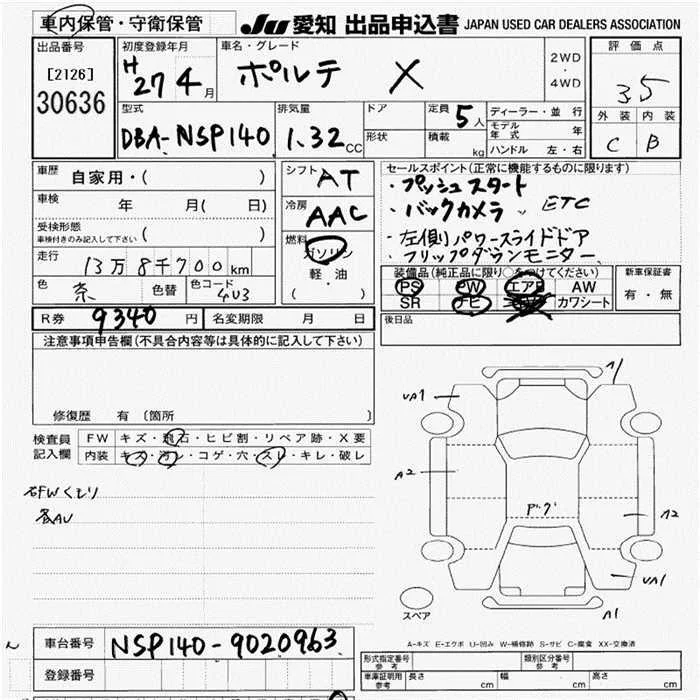 車内保管・守衛保管 JU 愛知 出品申込書 JAPAN USED CAR DEALERS ASSOCIATION
出品番号
[2126]
30636
初度登録年月
H27 4月
車名・グレード
ポルテ X
2WD
・
4WD
評価点
35
外装 内装
C B
型式
DBA-NSP140
排気量
1.32CC
ドア
形状
定員 5人
積載 kg
ディーラー・並行
モデル年式 年
ハンドル 左・右
車歴 自家用・( )
車検 年 月( 日)
受検形態
車検付きのみ記入して下さい ( )
走行 13万8千700km
色 茶 色替 色コード 4U3
シフト AT
冷房 AAC
燃料
ガソリン
軽・油
( )
セールスポイント(正常に機能するものに限ります)
・プッシュスタート
・バックカメラ 、 ETC
・左側パワースライドドア
・フリップダウンモニター
装備品(純正品に限り○をつけてください)
PS PW エアB AW
SR ナビ カワシート
新車保証書
有・無
R券 9340円 名変期限 月 日
後日品
注意事項申告欄(不具合内容等は具体的に記入して下さい)
修復歴 有 〔箇所 〕
検査員記入欄
FW キズ・飛石・ヒビ割・リペア跡・X要
内装 キズ・汚レ・コゲ・穴・スレ・キレ・破レ
FWくもり
各AU
A1
UA1
A2
A2
UA1
A1
スペア
A-キズ E-エクボ U-凹み W-補修跡 S-サビ C-腐食 XX-交換済
車台番号 NSP140-9020963
登録番号
形式指定番号 参考
類別区分番号 参考
車庫証明用 参考 長さ cm 幅 cm 高さ cm